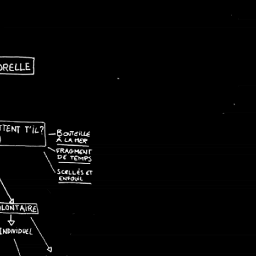 ORELLE
TTENT T'IL?
BOUTEILLE
À LA MER
FRAGMENT
DE TEMPS
SCELLÉS ET
ENFOUI
OLONTAIRE
INDIVIDUEL